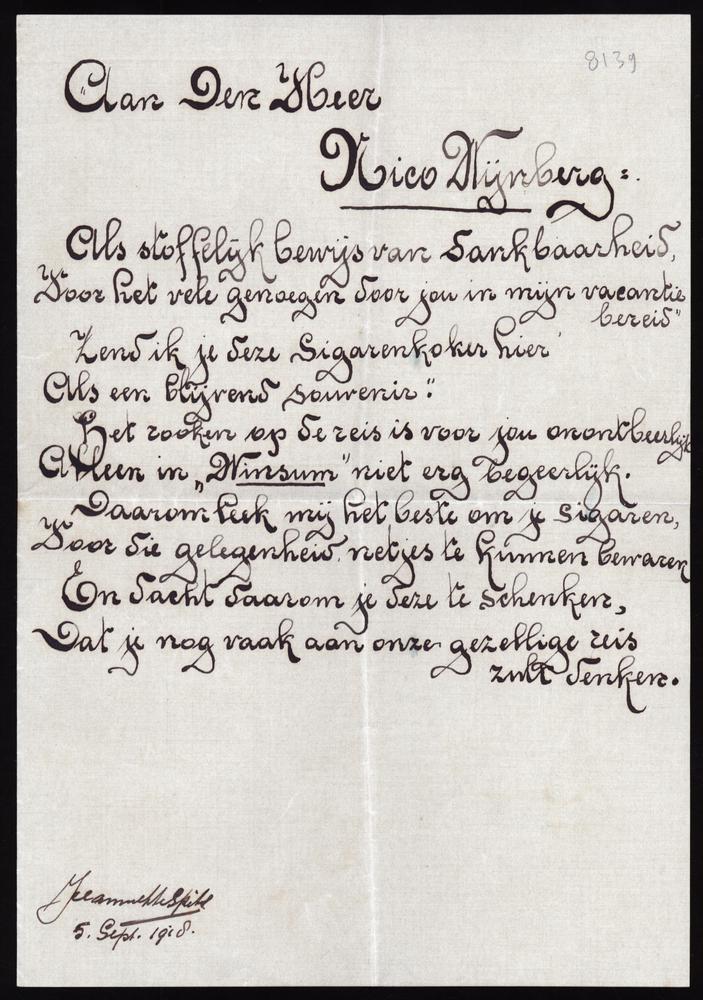 8139
Aan Den Heer
Nico Wijnberg:.
Als stoffelijk bewijs van dankbaarheid,
Voor het vele genoegen door jou in mijn vacantie
bereid"
Zend ik je deze Sigarenkoker hier
Als een blijvend souvenir"
Het rooken op de reis is voor jou onontbeerlijk
Alleen in „Winsum" niet erg begeerlijk.
Daarom leek mij het beste om je sigaren,
Voor die gelegenheid, netjes te kunnen bewaren
En dacht daarom je deze te schenken,
Dat je nog vaak aan onze gezellige reis
zult denken.
Jeannette Spits
5. Sept. 1918.